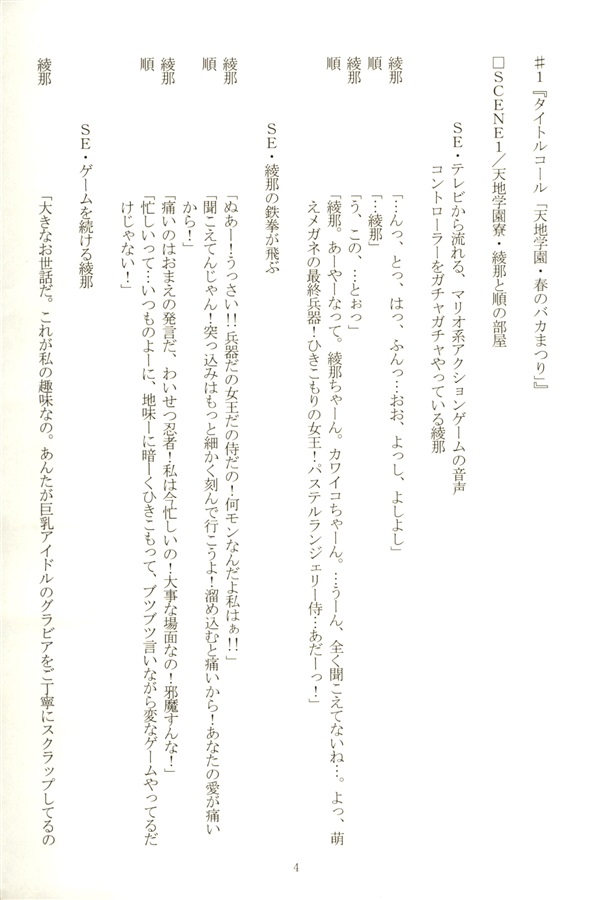 ♯1『タイトルコール「天地学園・春のバカまつり」』
□SCENE1／天地学園寮・綾那と順の部屋
SE・テレビから流れる、マリオ系アクションゲームの音声
コントローラーをガチャガチャやっている綾那
綾那 「…んっ、とっ、はっ、ふんっ…おお、よっし、よしよし」
順 「…綾那」
綾那 「う、この、…とぉっ」
順 「綾那。あーやーなって。綾那ちゃーん。カワイコちゃーん。…うーん、全く聞こえてないね…。よっ、萌
えメガネの最終兵器！ひきこもりの女王！パステルランジェリー侍…あだーっ！」
SE・綾那の鉄拳が飛ぶ
綾那 「ぬあーーーうっさい!!兵器だの女王だの侍だの！何モンなんだよ私はぁ!!」
順 「聞こえてんじゃん！突っ込みはもっと細かく刻んで行こうよ！溜め込むと痛いから！あなたの愛が痛い
から！」
綾那 「痛いのはおまえの発言だ、わいせつ忍者！私は今忙しいの！大事な場面なの！邪魔すんな！」
順 「忙しいって…いつものよーに、地味ーに暗ーくひきこもって、ブツブツ言いながら変なゲームやってるだ
けじゃない！」
SE・ゲームを続ける綾那
綾那 「大きなお世話だ。これが私の趣味なの。あんたが巨乳アイドルのグラビアをご丁寧にスクラップしてるの
4